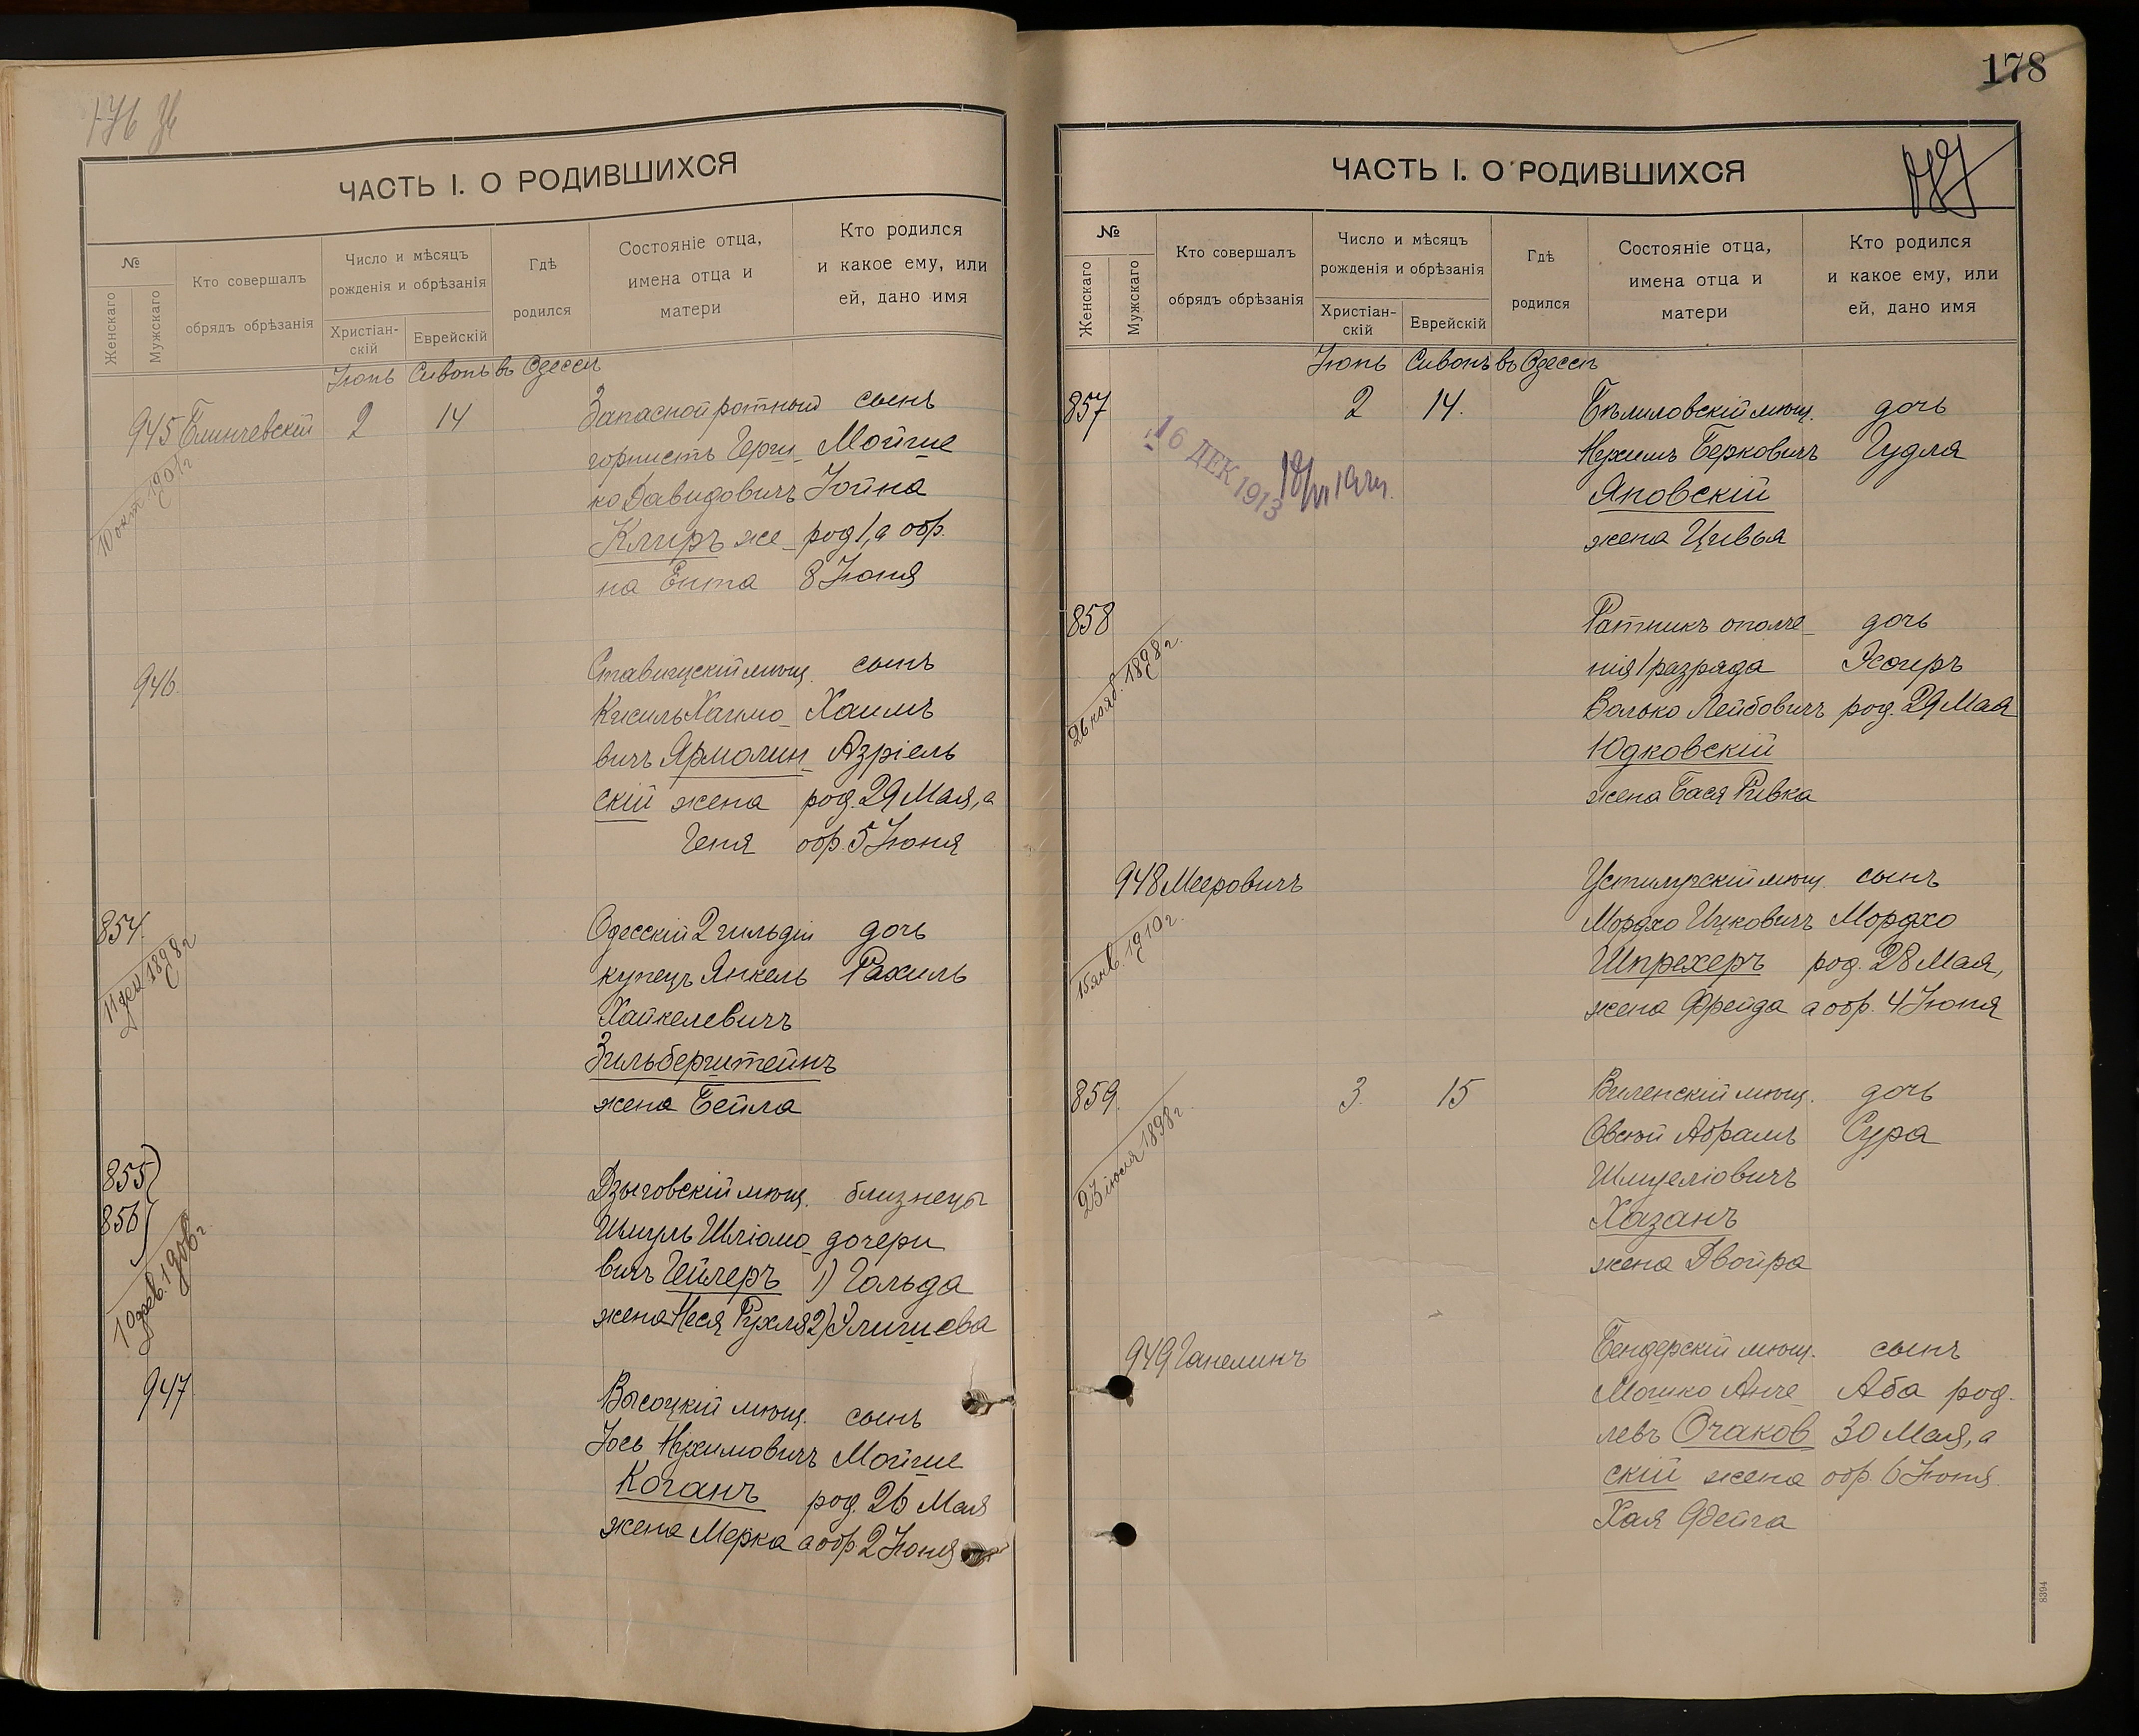 ЧАСТЬ I. О РОДИВШИХСЯ
№
Женскаго
Мужскаго
Кто совершалъ
обрядъ обрѣзанія
Число и мѣсяцъ
рожденія и обрѣзанія
Христіан-
скій
Еврейскій
Гдѣ
родился
Состояніе отца,
имена отца и
матери
Кто родился
и какое ему, или
ей, дано имя
Іюнь Сивонъ въ Одессѣ
945 Блинчевскій 2 14 Запасной ротный сынъ
горнистъ Герш- Мойше
ко Давидовичъ Іойна
Клиръ же- род 1, а обр.
на Ента 8 Іюня
10 окт. 1901 г
946. Ставищскій мѣщ. сынъ
Кисиль Хаимо- Хаимъ
вичъ Ярмолин- Азріель
скій жена род. 29 Мая, а
Геня обр. 5 Іюня
854. Одесскій 2 гильдіи дочь
купецъ Янкель Рахиль
Хайкелевичъ
Зильберштейнъ
жена Бейла
11 дек 1898 г
855)
856)
Дзыговскій мѣщ. близнецы
Шмуль Шліомо- дочери
вичъ Гейлеръ 1) Гольда
жена Неся Рухля 2) Элишева
1 февр. 1906 г
947 Высоцкій мѣщ. сынъ
Іось Нухимовичъ Мойше
Коганъ род. 26 Мая
жена Мерка а обр. 2 Іюня
178
ЧАСТЬ I. О РОДИВШИХСЯ
№
Женскаго
Мужскаго
Кто совершалъ
обрядъ обрѣзанія
Число и мѣсяцъ
рожденія и обрѣзанія
Христіан-
скій
Еврейскій
Гдѣ
родился
Состояніе отца,
имена отца и
матери
Кто родился
и какое ему, или
ей, дано имя
Іюнь Сивонъ въ Одессѣ
857 2 14. Бѣлиловскій мѣщ. дочь
Нухимъ Берковичъ Гудля
Яновскій
жена Цивья
16 ДЕК 1913
858 Ратникъ ополче- дочь
нія 1 разряда Эсѳиръ
Волько Лейбовичъ род. 29 Мая
Юдковскій
жена Бася Ривка
26 нояб. 1898 г.
948 Мееровичъ Устилугскій мѣщ. сынъ
Мордхо Ицковичъ Мордхо
Шпрехеръ род. 28 Мая,
жена Фрейда а обр. 4 Іюня
15 янв. 1910 г.
859. 3. 15 Виленскій мѣщ. дочь
Овсей Абрамъ Сура
Шмуеліовичъ
Хазанъ
жена Двойра
23 іюля 1898 г.
949 Ганелинъ Бендерскій мѣщ. сынъ
Мошко Анче- Аба род.
левъ Очаков- 30 Мая, а
скій жена обр. 6 Іюня.
Хая Фейга
8394